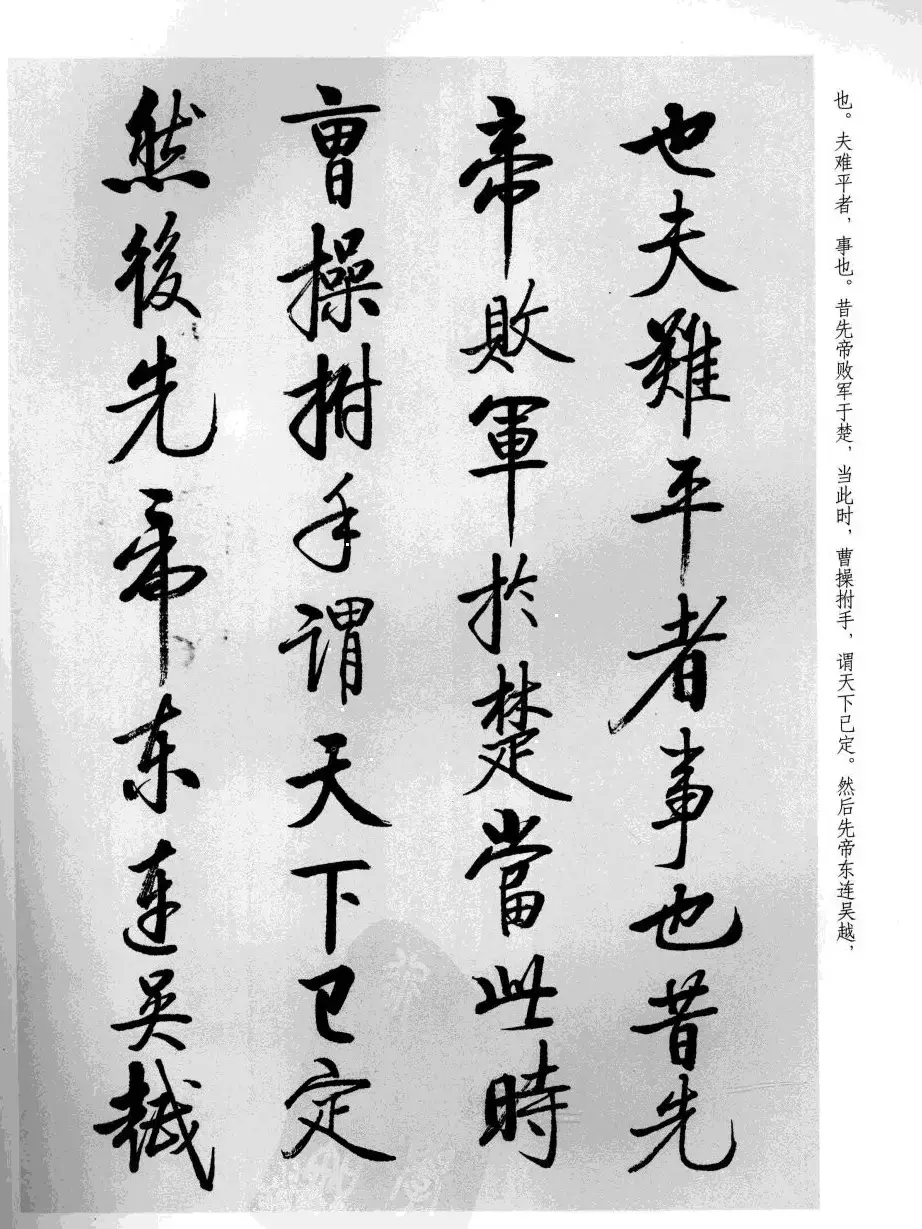 也。夫难平者，事也。昔先帝败军于楚，当此时，曹操拊手，谓天下已定。然后先帝东连吴越，
也夫難平者事也昔先
帝敗軍於楚當此時
曹操拊手謂天下已定
然後先帝东連吳越